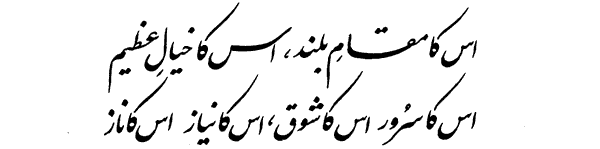 اس کا مقامِ بلند، اس کا خیالِ عظیم
اس کا سرُور اس کا شوق، اس کا نیاز اس کا ناز